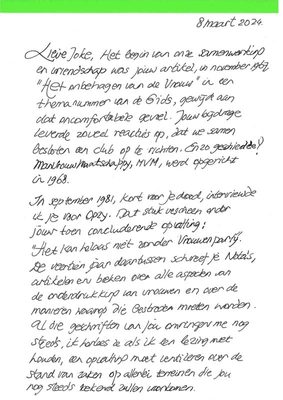 8 maart 2024.
Lieve Joke, Het begin van onze samenwerking
en vriendschap was jouw artikel, in november 1967
"Het onbehagen van de Vrouw" in een
themanummer van de Gids, gewijd aan
dat oncomfortabele gevoel. Jouw bijdrage
leverde zoveel reacties op, dat we samen
besloten een club op te richten. En zo geschiedde!
Man Vrouw Maatschappij, MVM, werd opgericht
in 1968.
In september 1981, kort voor je dood, interviewde
ik je voor Opzij. Dat stuk verscheen onder
jouw toen concluderende opvatting:
"Het kan helaas niet zonder Vrouwenpartij.
De veertien jaar daartussen schreef je Nota's,
artikelen en boeken over alle aspecten van
de onderdrukking van vrouwen en over de
manieren waarop die bestreden moeten worden.
Al die geschriften van jou omringen me nog
steeds, ik herlees ze als ik een lezing moet
houden, een opvatting moet ventileren over de
stand van zaken op allerlei terreinen die jou
nog steeds bekend zullen voorkomen.